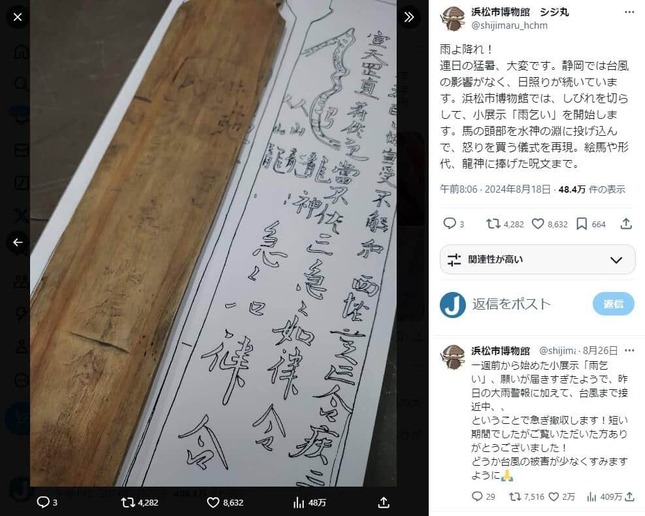 浜松市博物館　シジ丸
@shijimaru_hchm
雨よ降れ！
連日の猛暑、大変です。静岡では台風
の影響がなく、日照りが続いていま
す。浜松市博物館では、しびれを切ら
して、小展示「雨乞い」を開始しま
す。馬の頭部を水神の淵に投げ込ん
で、怒りを買う儀式を再現。絵馬や形
代、龍神に捧げた呪文まで。
午前8:06 · 2024年8月18日 · 48.4万 件の表示
3 4,282 8,632 664
関連性が高い
J 返信をポスト 返信
浜松市博物館 @shijima · 8月26日
一週前から始めた小展示「雨乞
い」、願いが届きすぎたようで、昨
日の大雨警報に加えて、台風まで接
近中、、
ということで急ぎ撤収します！短い
期間でしたがご覧いただいた方あり
がとうございました！
どうか台風の被害が少なくすみます
ように🙏
29 7,516 2万 409万
急々如律令
3 4,282 8,632 48万